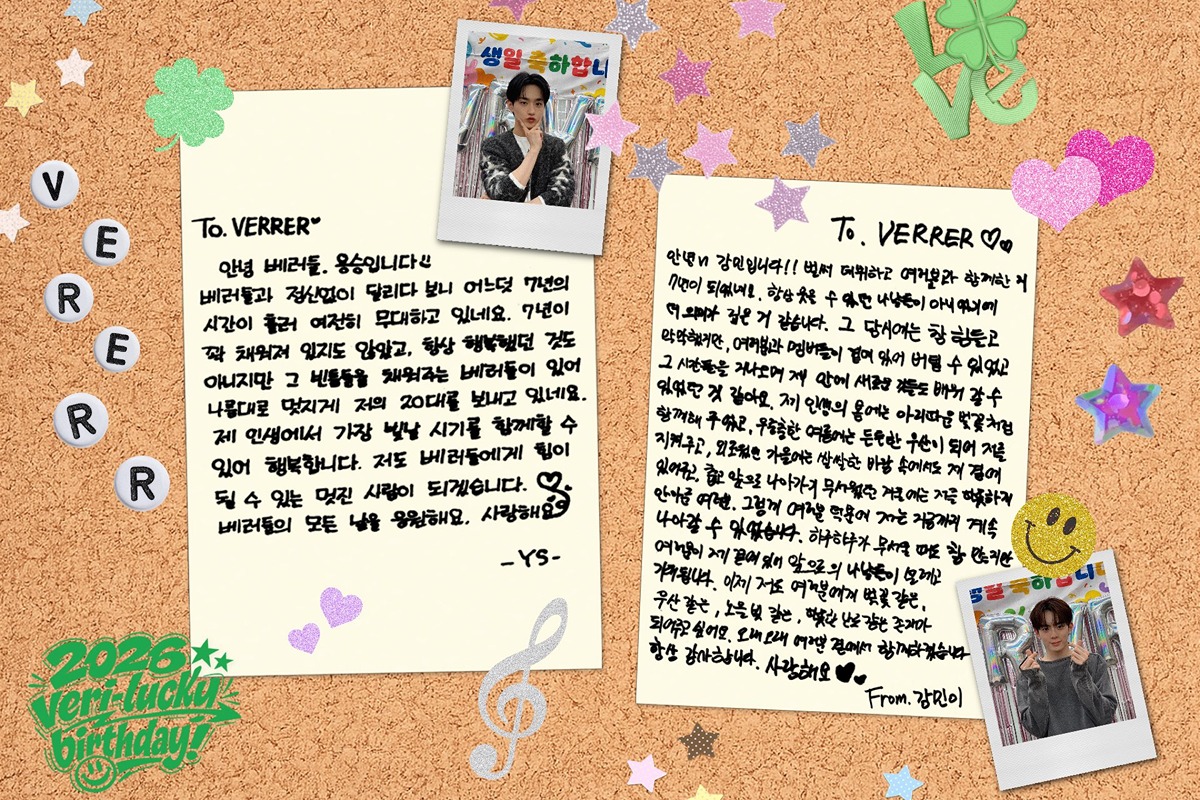 VERRER
To. VERRER♥
안녕 베러들. 용승입니다
베러들과 정신없이 달리다 보니 어느덧 7년의
시간이 흘러 여전히 무대하고 있네요. 7년이
꽉 채워져 있지도 않았고, 항상 행복했던 것도
아니지만 그 빈틈들을 채워주는 베러들이 있어
나름대로 멋지게 저의 20대를 보내고 있네요.
제 인생에서 가장 빛날 시기를 함께할 수
있어 행복합니다. 저도 베러들에게 힘이
될 수 있는 멋진 사람이 되겠습니다. ♡
베러들의 모든 날을 응원해요. 사랑해요
-YS-
생일 축하합니
LOVE
To. VERRER ♡♡
안녕 강민입니다!! 벌써 데뷔하고 여러분과 함께한 지
7년이 되었네요. 항상 웃을 수 있었던 나날들이 아니었기에
더 의미가 깊은 거 같습니다. 그 당시에는 참 힘들고
막막했지만, 여러분과 멤버들이 곁에 있어 버틸 수 있었고
그 시간들을 지나오며 제 안에 새로운 것들도 배워 갈 수
있었던 것 같아요. 제 인생의 봄에는 아리따운 벚꽃처럼
함께해 주었고, 우중충한 여름에는 든든한 우산이 되어 저를
지켜주고, 외로웠던 가을에는 쌀쌀한 바람 속에서도 제 곁에
있어주고, 춥고 앞으로 나아가기 무서웠던 겨울에는 저를 따뜻하게
안아준 여러분. 그렇게 여러분 덕분에 저는 지금까지 계속
나아갈 수 있었습니다. 하루하루가 무서울 때도 참 많지만
여러분이 제 곁에 있어 앞으로의 나날들이 설레고
기대됩니다. 이제 저도 여러분에게 벚꽃 같은,
우산 같은, 노을 빛 같은, 따뜻한 난로 같은 존재가
되어주고 싶어요. 오래오래 여러분 곁에서 함께하겠습니다
항상 감사합니다. 사랑해요
From. 강민이
생일 축하합니다
2026
veri-lucky
birthday!